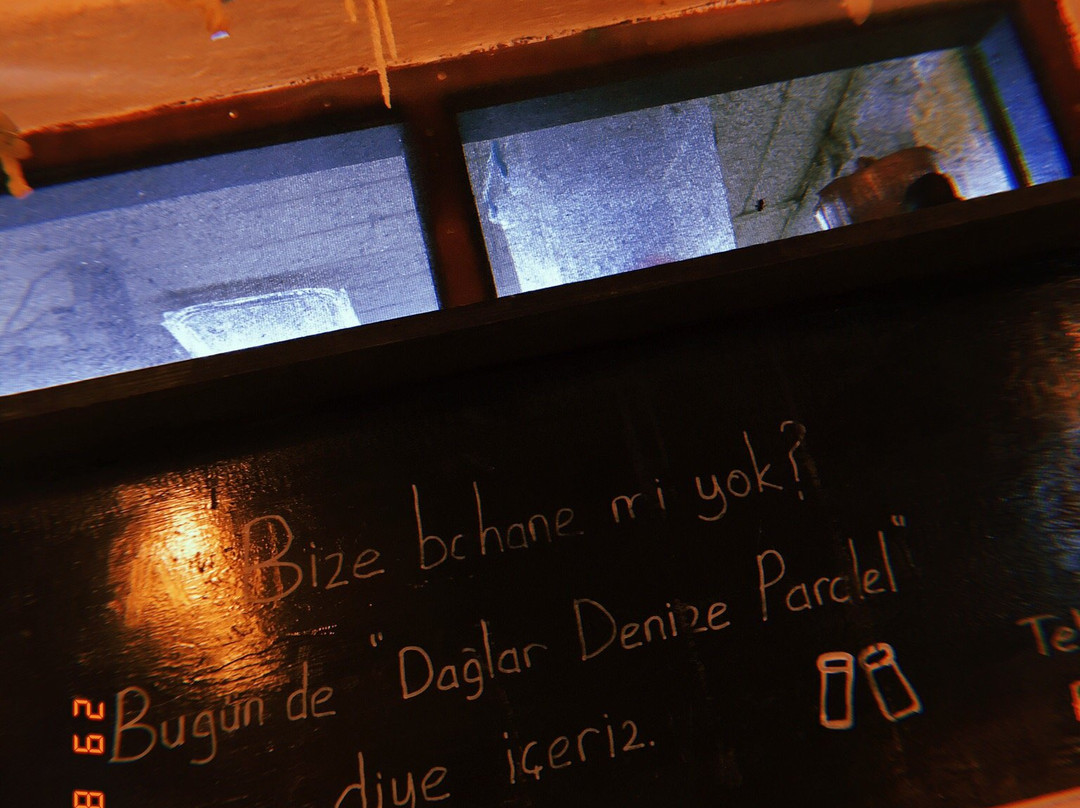 Bize bahane mi yok?
Bugün de "Dağlar Denize Paralel"
diye içeriz.
Te
62
8